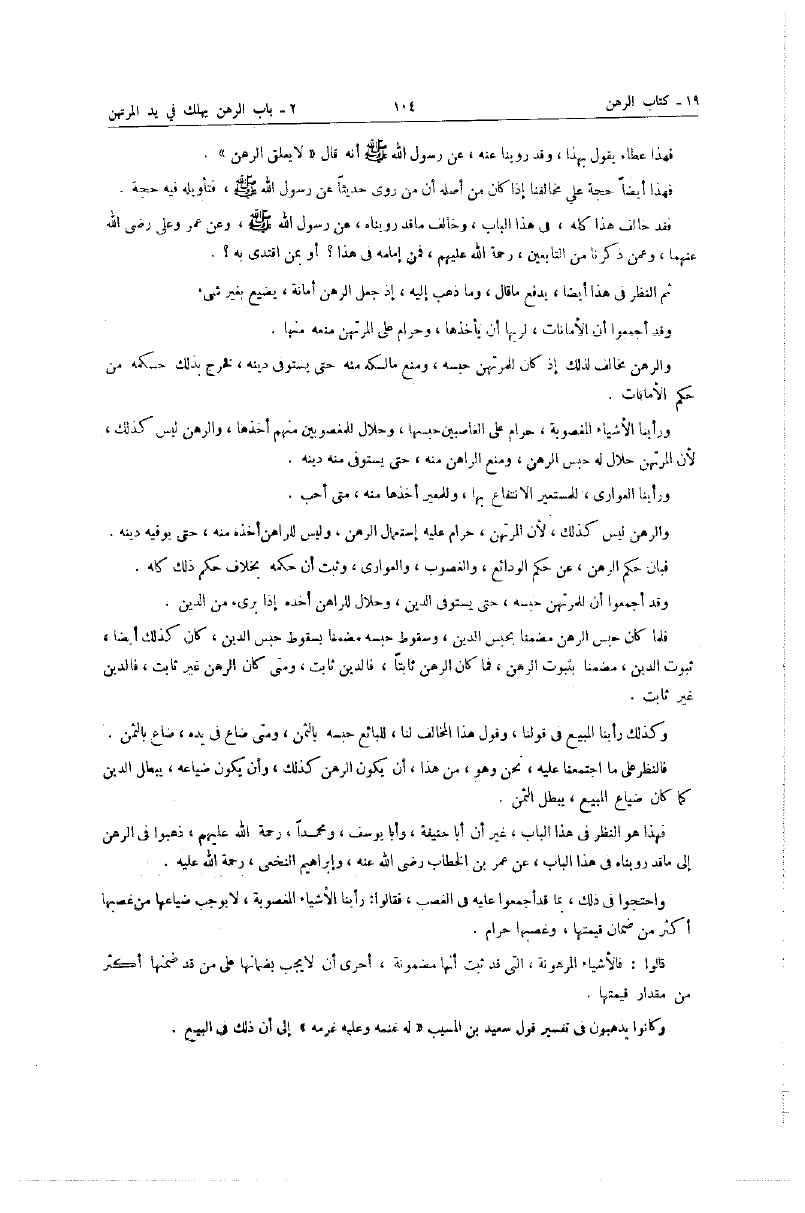 ١٩ - كتاب الرهن ١٠٤ ٢ - باب الرهن يهلك في يد المرتهن
فهذا عطاء يقول بهذا ، وقد روينا عنه ، عن رسول الله ﷺ أنه قال « لا يغلق الرهن » .
فهذا أيضاً حجة على مخالفنا إذا كان من أصله أن من روى حديثاً عن رسول الله ﷺ ، فتأويله فيه حجة .
فقد خالف هذا كله ، فى هذا الباب ، وخالف ماقد رويناه ، عن رسول الله ﷺ ، وعن عمر وعلى رضى الله
عنهما ، وعمن ذكرنا من التابعين ، رحمة الله عليهم ، فمن إمامه فى هذا ؟ أو بمن اقتدى به ؟ .
ثم النظر فى هذا أيضا ، يدفع ماقال ، وما ذهب إليه ، إذ جعل الرهن أمانة ، يضيع بغير شىء
وقد أجمعوا أن الأمانات ، لربها أن يأخذها ، وحرام على المرتهن منعه منها .
والرهن مخالف لذلك إذ كان للمرتهن حبسه ، ومنع مالكه منه حتى يستوفى دينه ، فخرج بذلك حكمه من
حكم الأمانات .
ورأينا الأشياء المغصوبة ، حرام على الغاصبين حبسها ، وحلال للمغصوبين منهم أخذها ، والرهن ليس كذلك ،
لأن المرتهن حلال له حبس الرهن ، ومنع الراهن منه ، حتى يستوفى منه دينه .
ورأينا العوارى ، للمستعير الانتفاع بها ، وللمعير أخذها منه ، متى أحب .
والرهن ليس كذلك ، لأن المرتهن ، حرام عليه إستعمال الرهن ، وليس للراهن أخذه منه ، حتى يوفيه دينه .
فبان حكم الرهن ، عن حكم الودائع ، والغصوب ، والعوارى ، وثبت أن حكمه بخلاف حكم ذلك كله .
وقد أجمعوا أن للمرتهن حبسه ، حتى يستوفى الدين ، وحلال للراهن أخذه إذا برىء من الدين .
فلما كان حبس الرهن مضمنا بحبس الدين ، وسقوط حبسه مضمنا بسقوط حبس الدين ، كان كذلك أيضا ،
ثبوت الدين ، مضمنا بثبوت الرهن ، فما كان الرهن ثابتاً ، فالدين ثابت ، ومتى كان الرهن غير ثابت ، فالدين
غير ثابت .
وكذلك رأينا المبيع فى قولنا ، وقول هذا المخالف لنا ، للبائع حبسه بالثمن ، ومتى ضاع فى يده ، ضاع بالثمن .
فالنظر على ما اجتمعنا عليه ، نحن وهو ، من هذا ، أن يكون الرهن كذلك ، وأن يكون ضياعه ، يبطل الدين
كما كان ضياع المبيع ، يبطل الثمن .
فهذا هو النظر فى هذا الباب ، غير أن أبا حنيفة ، وأبا يوسف ، ومحمداً ، رحمة الله عليهم ، ذهبوا فى الرهن
إلى ماقد رويناه فى هذا الباب ، عن عمر بن الخطاب رضى الله عنه ، وإبراهيم النخعى ، رحمة الله عليه .
واحتجوا فى ذلك ، بما قد أجمعوا عليه فى الغصب ، فقالوا: رأينا الأشياء المغصوبة ، لايوجب ضياعها من غصبها
أكثر من ضمان قيمتها ، وغصبها حرام .
قالوا : فالأشياء المرهونة ، التى قد ثبت أنها مضمونة ، أحرى أن لايجب بضمانها على من قد ضمنها أكثر
من مقدار قيمتها .
وكانوا يذهبون فى تفسير قول سعيد بن المسيب « له غنمه وعليه غرمه » إلى أن ذلك فى البيع .